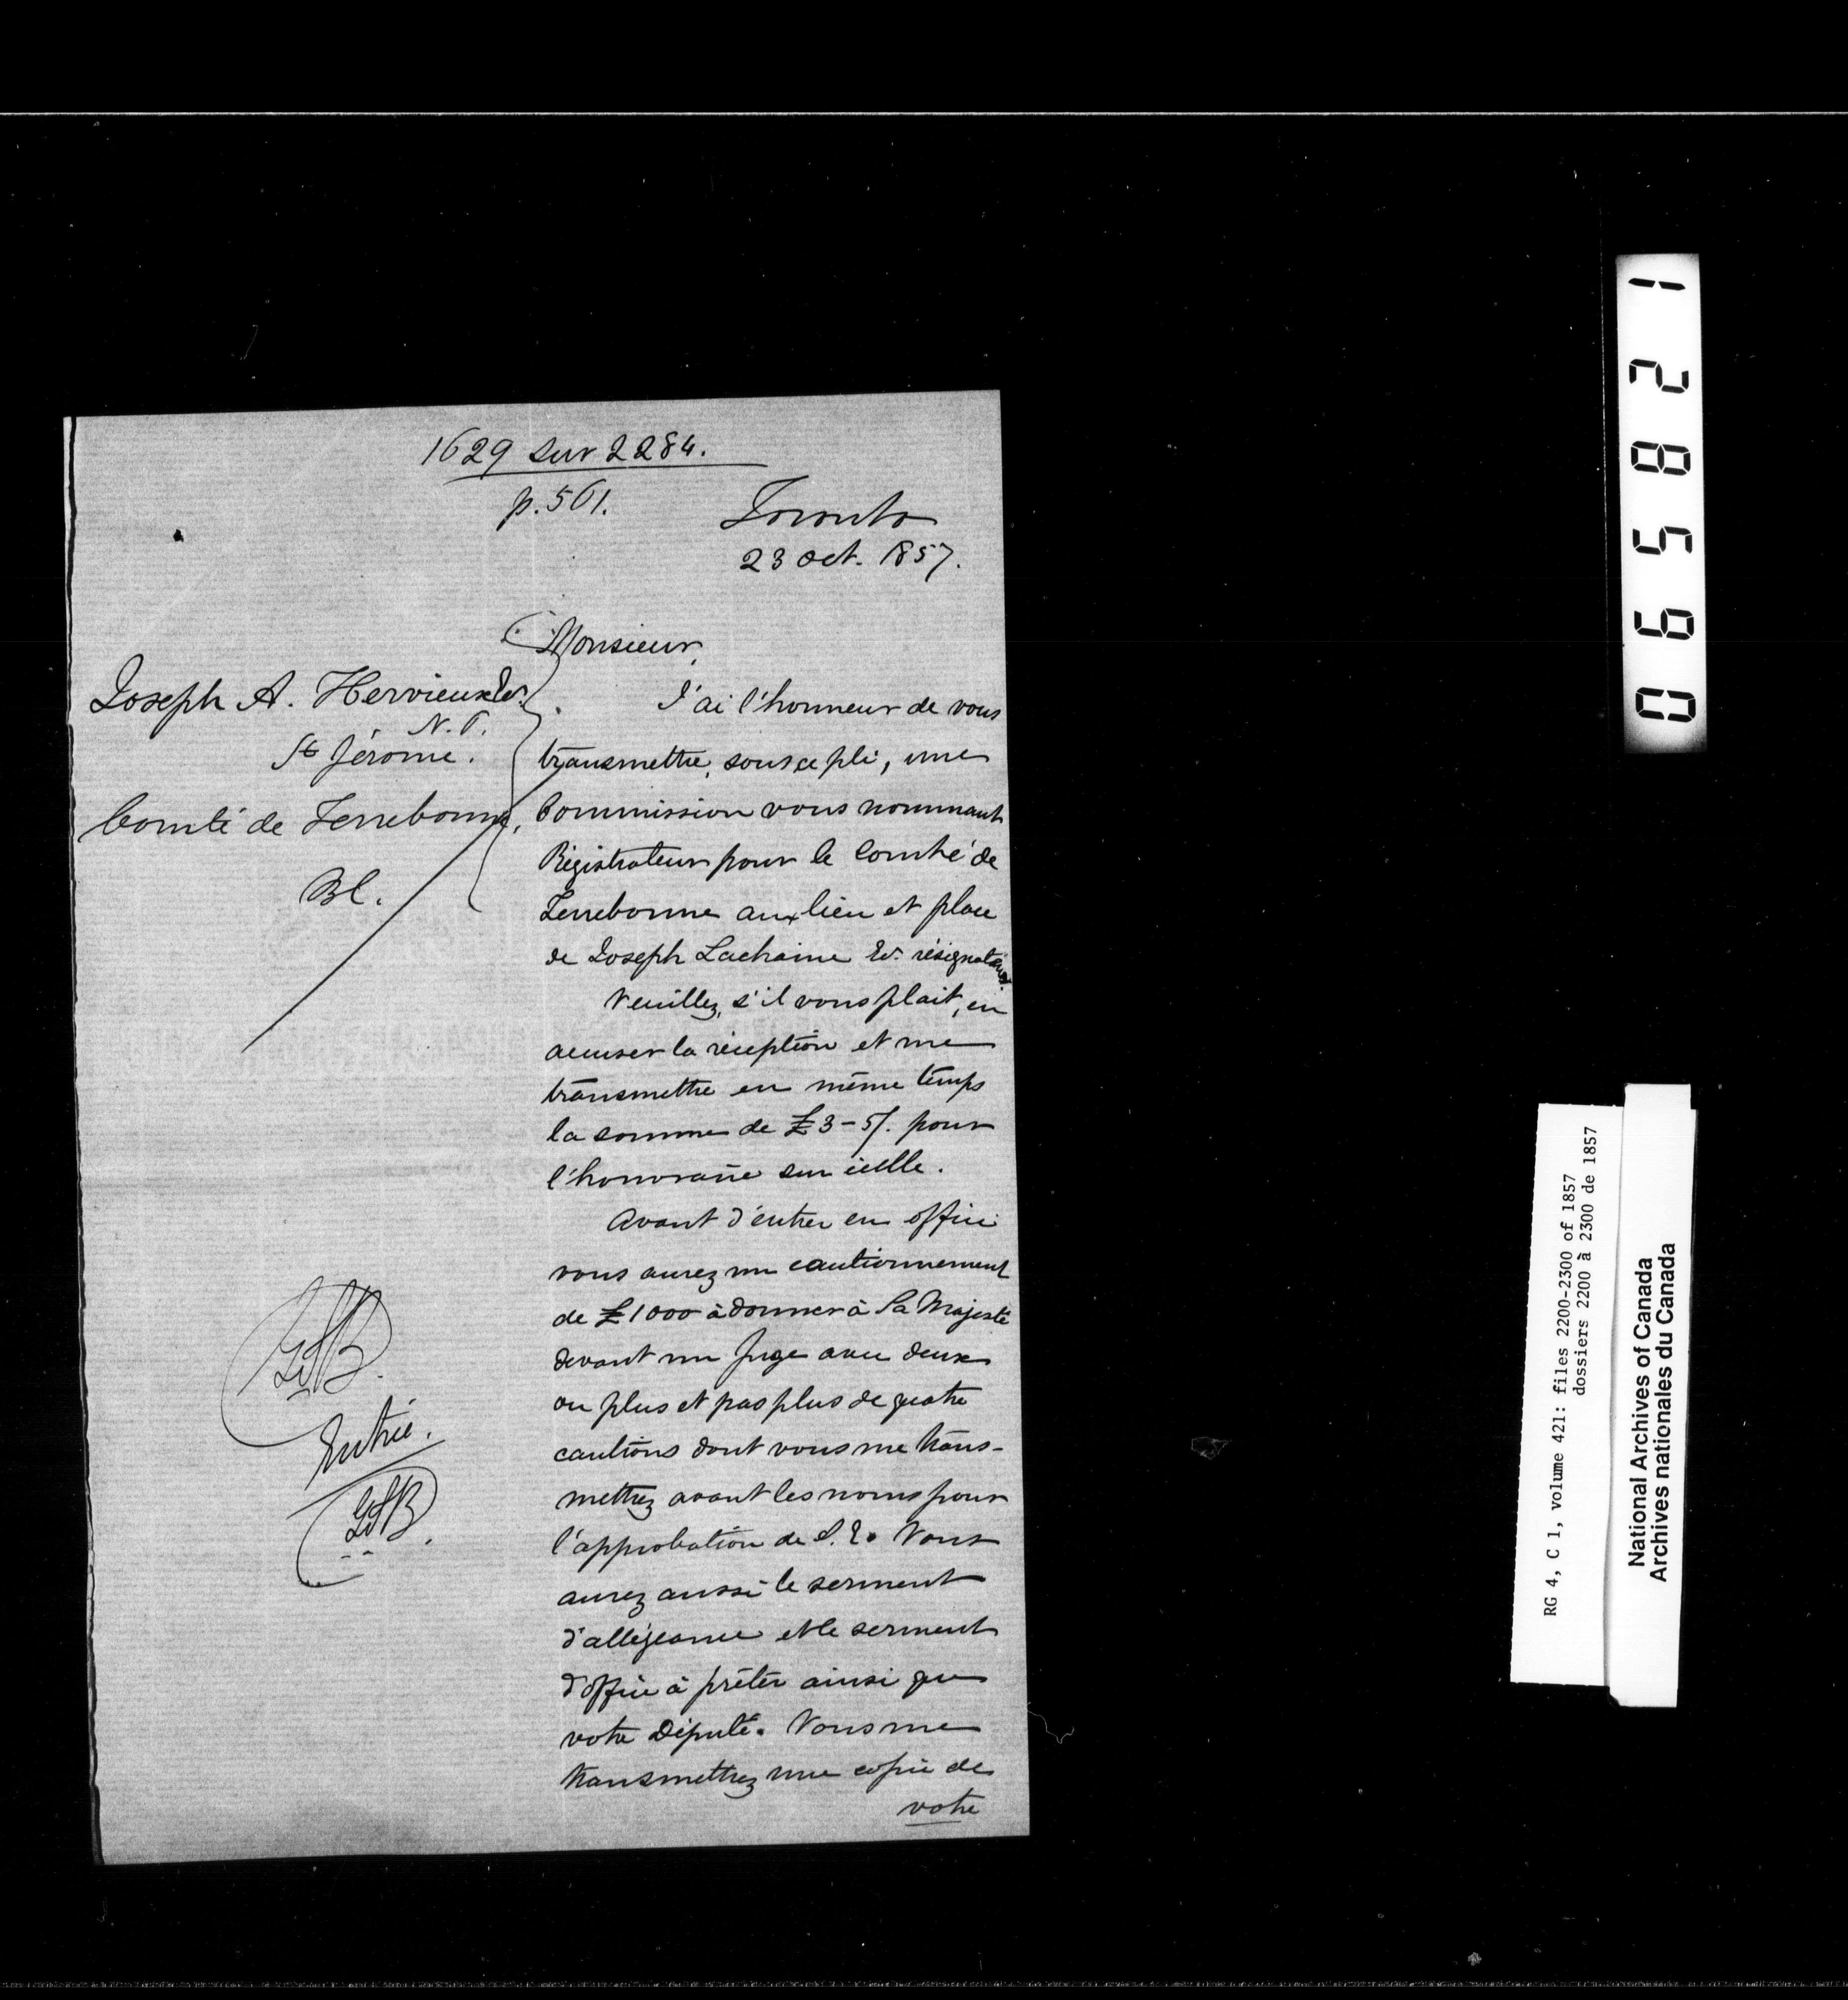 1629 sur 2284.
p. 561.
Toronto
23 Oct. 1857.
Monsieur,
Joseph A. Hervieux Er.
N. P.
St Jérome.
Comté de Terrebonne,
BC.
J'ai l'honneur de vous
transmettre, sous ce pli, une
Commission vous nommant
Régistrateur pour le Comté de
Terrebonne au lieu et place
de Joseph Lachaine Er. résignataire
Veuillez, s'il vous plait, en
accuser la réception et me
transmettre en même temps
la somme de £3-5/. pour
l'honoraire sur icelle.
Avant d'entrer en office
vous aurez un cautionnement
de £1000 à donner à Sa Majesté
devant un Juge avec deux
ou plus et pas plus de quatre
cautions dont vous me trans-
mettrez avant les noms pour
l'approbation de S. E. Vous
aurez aussi le serment
d'allégeance et le serment
d'office à prêter ainsi que
votre Député. Vous me
transmettrez une copie de
votre
Entrée.
0 6 5 8 2 1
RG 4, C 1, volume 421: files 2200-2300 of 1857
dossiers 2200 à 2300 de 1857
National Archives of Canada
Archives nationales du Canada